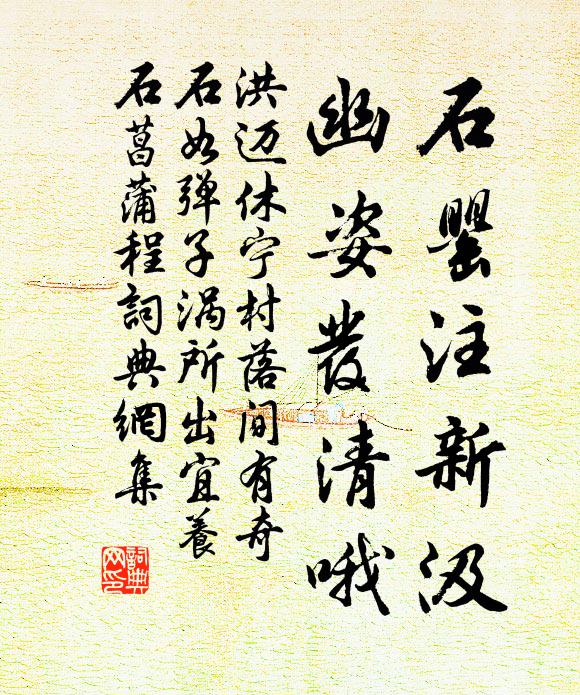 石罂注新汲
幽姿發清哦
洪迈休宁村落间有奇
石如弹子涡所出宜養
石菖蒲程詞典網集
詞典网印